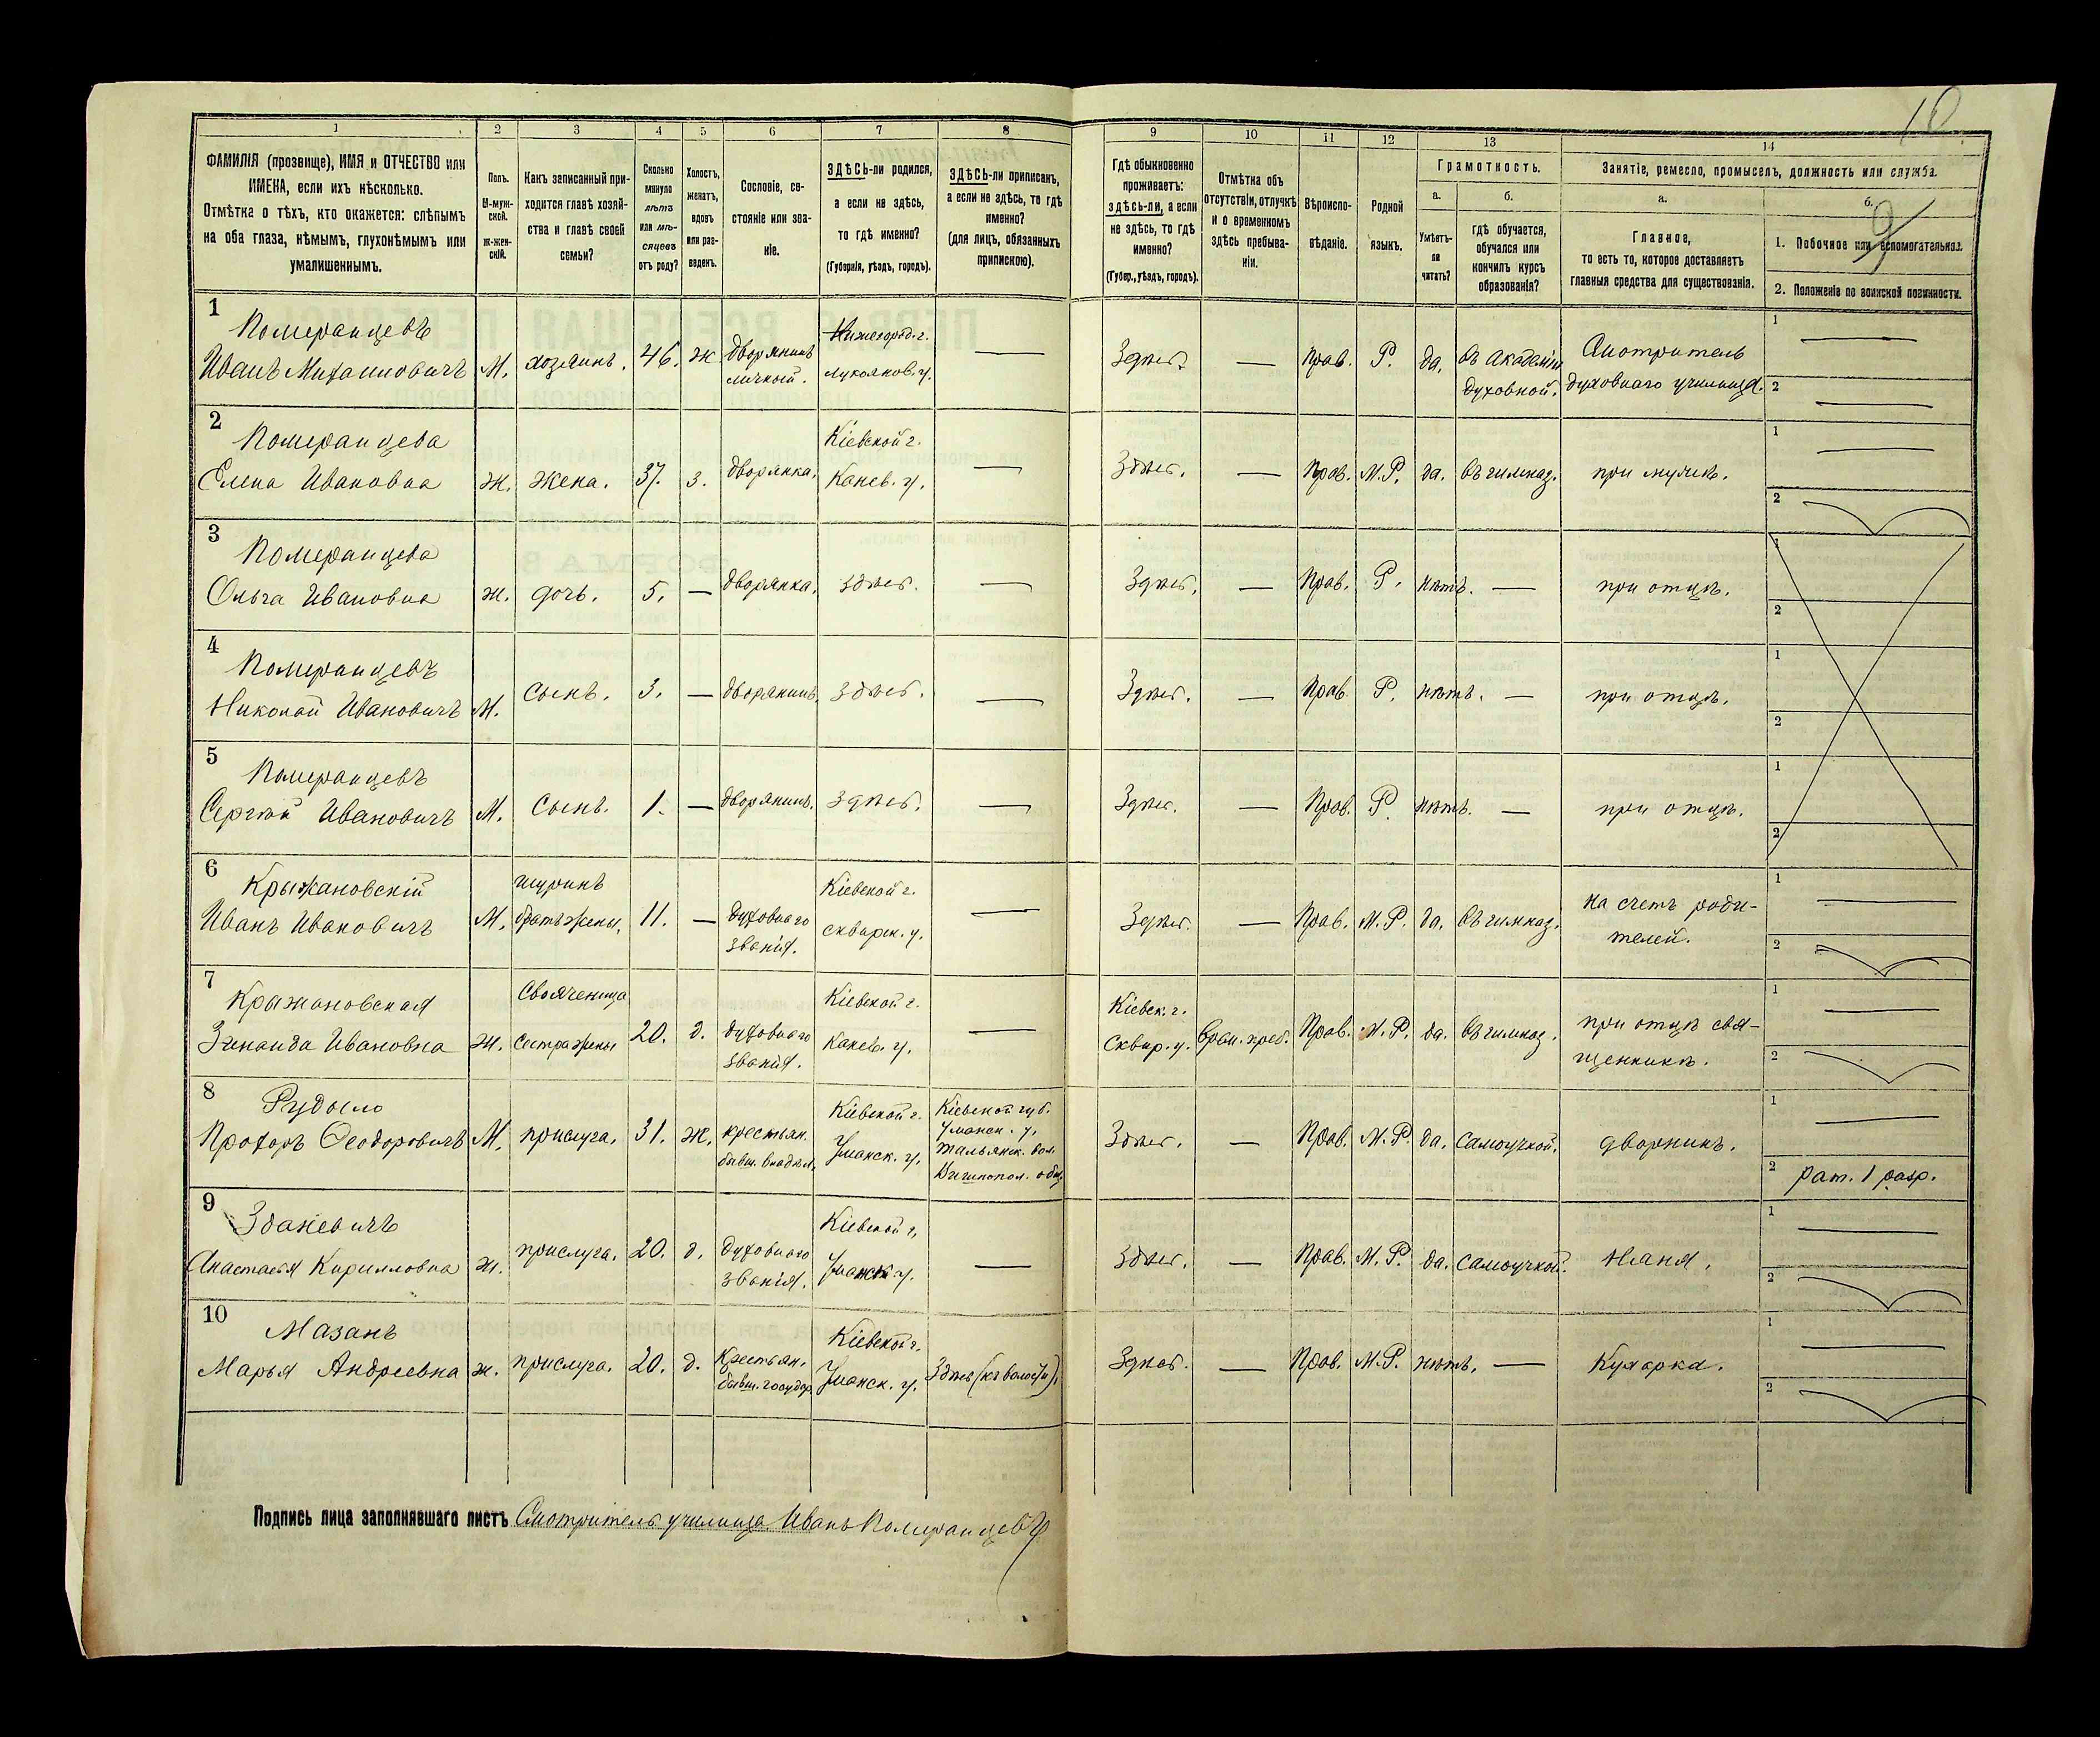 10
9
1
2
3
4
5
6
7
8
9
10
11
12
13
14
ФАМИЛІЯ (прозвище), ИМЯ и ОТЧЕСТВО или
ИМЕНА, если ихъ нѣсколько.
Отмѣтка о тѣхъ, кто окажется: слѣпымъ
на оба глаза, нѣмымъ, глухонѣмымъ или
умалишеннымъ.
Полъ.
М-муж-
ской.
Ж-жен-
скій.
Какъ записанный при-
ходится главѣ хозяй-
ства и главѣ своей
семьи?
Сколько
минуло
лѣтъ
или мѣ-
сяцевъ
отъ роду?
Холостъ,
женатъ,
вдовъ
или раз-
веденъ.
Сословіе, со-
стояніе или зва-
ніе.
ЗДѢСЬ-ли родился,
а если не здѣсь,
то гдѣ именно?
(Губернія, уѣздъ, городъ).
ЗДѢСЬ-ли приписанъ,
а если не здѣсь, то гдѣ
именно?
(для лицъ, обязанныхъ
припискою).
Гдѣ обыкновенно
проживаетъ:
здѣсь-ли, а если
не здѣсь, то гдѣ
именно?
(Губер., уѣздъ, городъ).
Отмѣтка объ
отсутствіи, отлучкѣ
и о временномъ
здѣсь пребыва-
ніи.
Вѣроиспо-
вѣданіе.
Родной
языкъ.
Грамотность.
а.
Умѣетъ-
ли
читать?
б.
гдѣ обучается,
обучался или
кончилъ курсъ
образованія?
Занятіе, ремесло, промыселъ, должность или служба.
а.
Главное,
то есть то, которое доставляетъ
главныя средства для существованія.
б.
1. Побочное или вспомогательное.
2. Положеніе по воинской повинности.
1
Померанцевъ
Иванъ Михаиловичъ
М.
хозяинъ.
46.
ж
дворянинъ
личный.
Нижегород. г.
Лукоянов. у.
—
Здѣсь
—
Прав.
Р.
да.
въ Академіи
духовной.
Смотритель
духовнаго училища.
1 —
2 —
2
Померанцева
Елена Ивановна
Ж.
жена.
37.
з.
дворянка.
Кіевской г.
Канев. у.
—
Здѣсь.
—
Прав.
М. Р.
да.
въ гимназ.
при мужѣ.
1 —
2
3
Померанцева
Ольга Ивановна
ж.
дочь.
5.
—
дворянка.
здѣсь.
—
Здѣсь.
—
Прав.
Р.
нѣтъ.
—
при отцѣ.
1
2
4
Померанцевъ
Николай Ивановичъ
М.
сынъ.
3.
—
дворянинъ.
здѣсь.
—
Здѣсь.
—
Прав.
Р.
нѣтъ.
—
при отцѣ.
1
2
5
Померанцевъ
Сергѣй Ивановичъ
М.
Сынъ.
1.
—
дворянинъ.
здѣсь.
—
Здѣсь.
—
Прав.
Р
нѣтъ.
—
при отцѣ.
1
2
6
Крыжановскій
Иванъ Ивановичъ
М.
шуринъ
братъ жены.
11.
—
духовнаго
званія.
Кіевской г.
сквирск. у.
—
Здѣсь.
—
Прав.
М. Р.
да.
въ гимназ.
на счетъ роди-
телей.
1 —
2
7
Крыжановская
Зинаида Ивановна
Ж.
Свояченица
Сестра жены
20.
д.
духовнаго
званія.
Кіевской г.
Канев. у.
—
Кіевск. г.
Сквир. у.
Врем. преб.
Прав.
М. Р.
да.
въ гимназ.
при отцѣ свя-
щенникѣ.
1 —
2
8
Рудыло
Прохоръ Ѳеодоровичъ
М.
прислуга.
31.
ж.
крестьян.
бывш. владѣл.
Кіевской г.
Уманск. у.
Кіевской губ.
Уманск. у.
Тальянск. вол.
Здѣсь.
—
Прав.
М. Р.
да.
самоучкой.
дворникъ.
1 —
2 рат. 1 разр.
9
Зданевичъ
Анастасія Кирилловна
ж.
прислуга.
20.
д.
духовнаго
званія.
Кіевской г.
Уманск у.
—
Здѣсь.
—
Прав.
М. Р.
да.
самоучкой.
Няня.
1 —
2
10
Мазанъ
Марья Андреевна
ж.
прислуга.
20.
д.
Крестьян.
бывш. государ.
Кіевской г.
Уманск. у.
Здѣсь (къ волости).
Здѣсь.
—
Прав.
М. Р.
нѣтъ.
—
Кухарка.
1 —
2
Подпись лица заполнявшаго листъ Смотритель училища Иванъ Померанцевъ